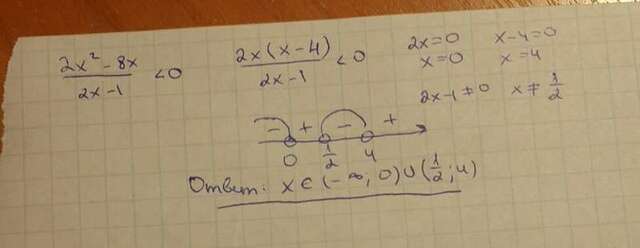 (2x² - 8x)/(2x - 1) < 0    2x(x - 4)/(2x - 1) < 0    2x = 0    x - 4 = 0
x = 0    x = 4
2x - 1 ≠ 0    x ≠ 1/2
- + - +
0 1/2 4
Ответ: x ∈ (-∞; 0) ∪ (1/2; 4)